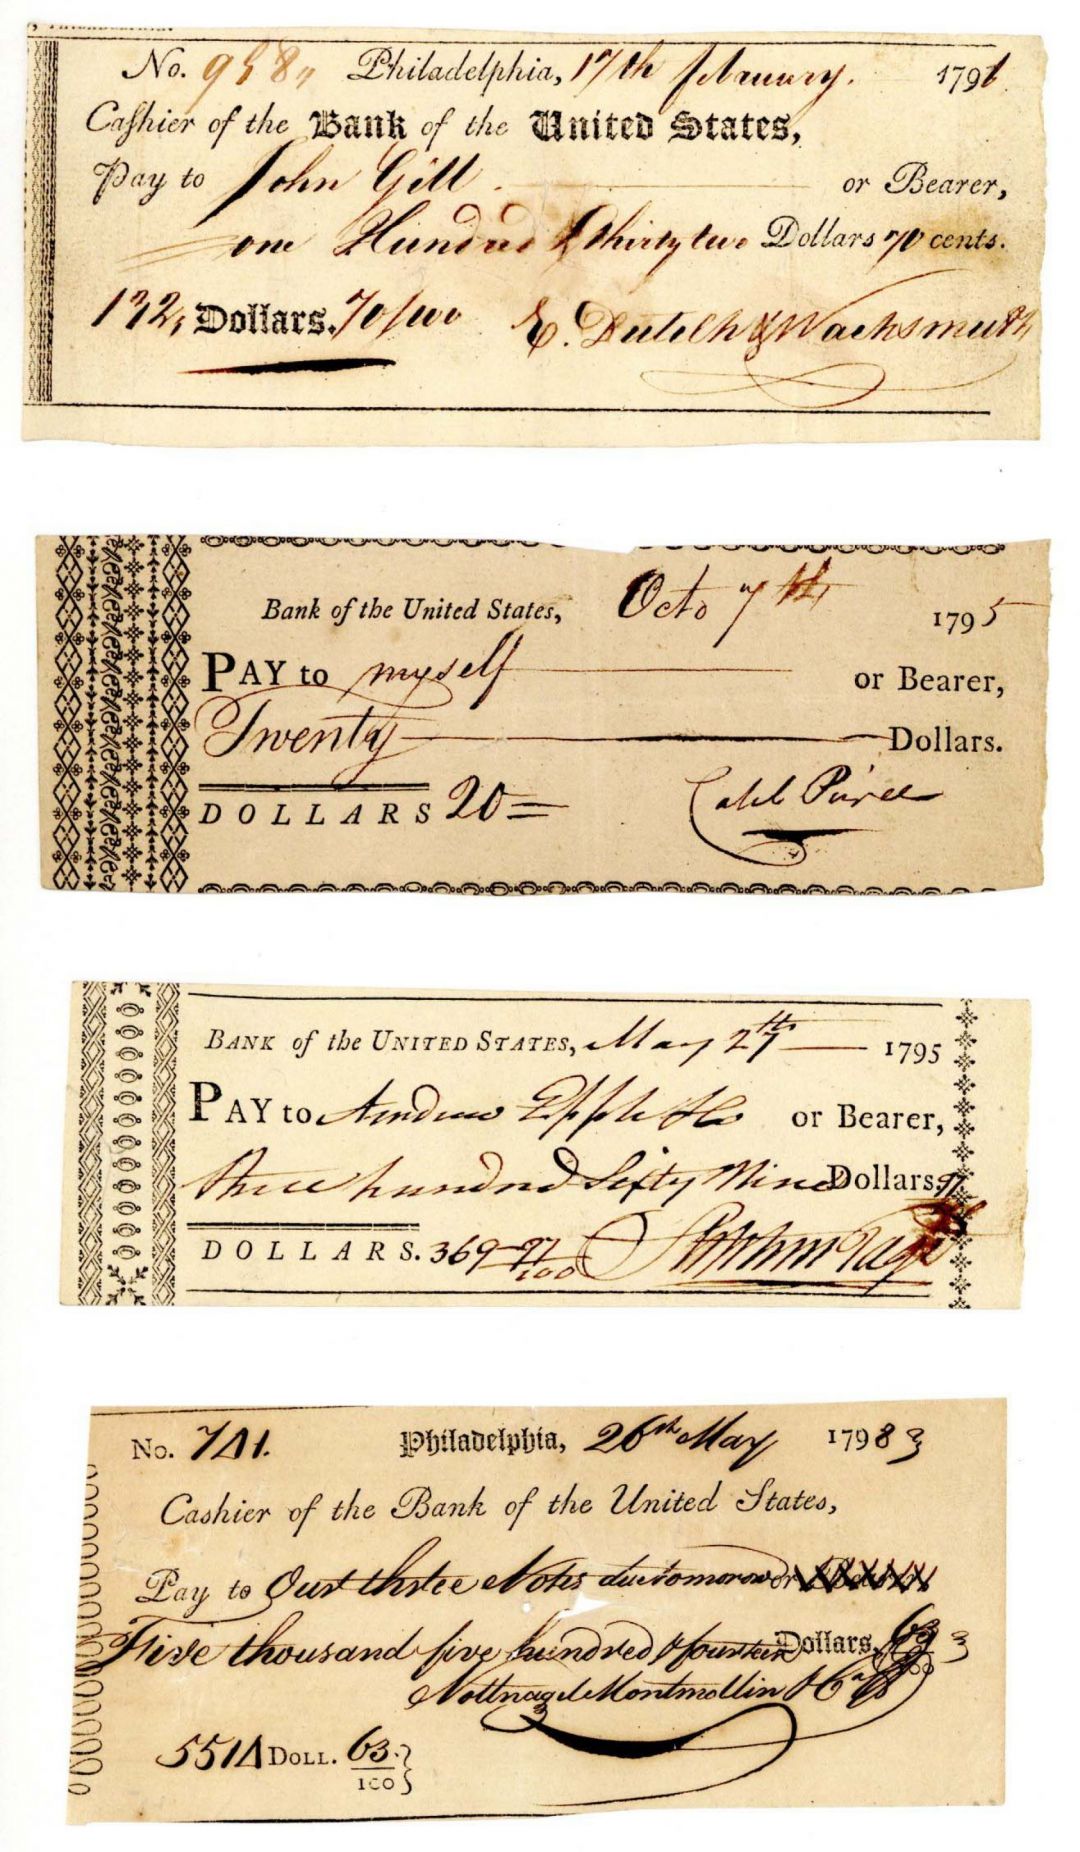 , PHILADELPHIA.
No. 958,, Philadelphia, 17th february. 1796
Cashier of the Bank of the United States,
Pay to John Gill or Bearer,
one Hundred & thirty two Dollars 70 cents.
132, Dollars. 70/100 E. Dutilh & Wachsmuth
Bank of the United States, Octo 7th 1795
PAY to myself or Bearer,
Twenty Dollars.
DOLLARS 20 Caleb Pirce
BANK of the UNITED STATES, May 27th 1795
PAY to Andrew Epple & Co or Bearer,
three hundred Sixty Nine Dollars 97
DOLLARS. 369 97/100
No. 741. Philadelphia, 26th May 1798
Cashier of the Bank of the United States,
Pay to Our three Notes due tomorow or Bearer,
Five thousand five hundred & fourteen Dollars, 63/100
Nottnagel Montmollin & Co
5514 DOLL. 63/100